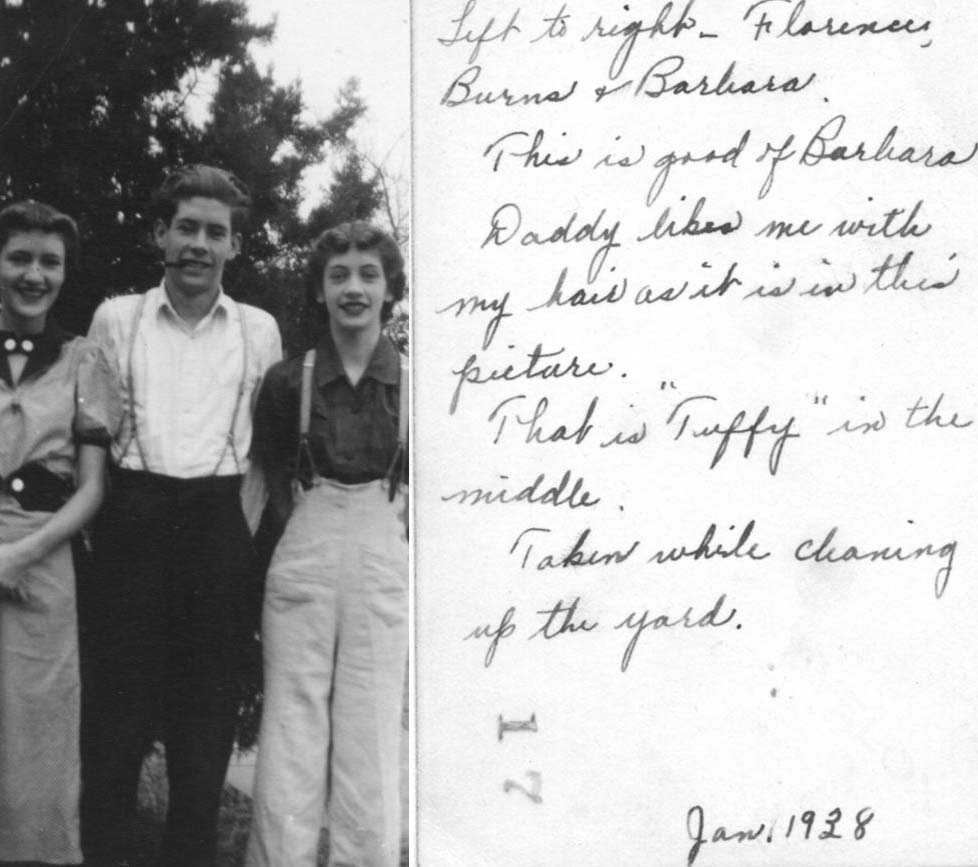 Left to right - Florence,
Burns & Barbara.
This is good of Barbara
Daddy likes me with
my hair as it is in this
picture.
That is "Tuffy" in the
middle.
Taken while cleaning
up the yard.
17
Jan. 1938